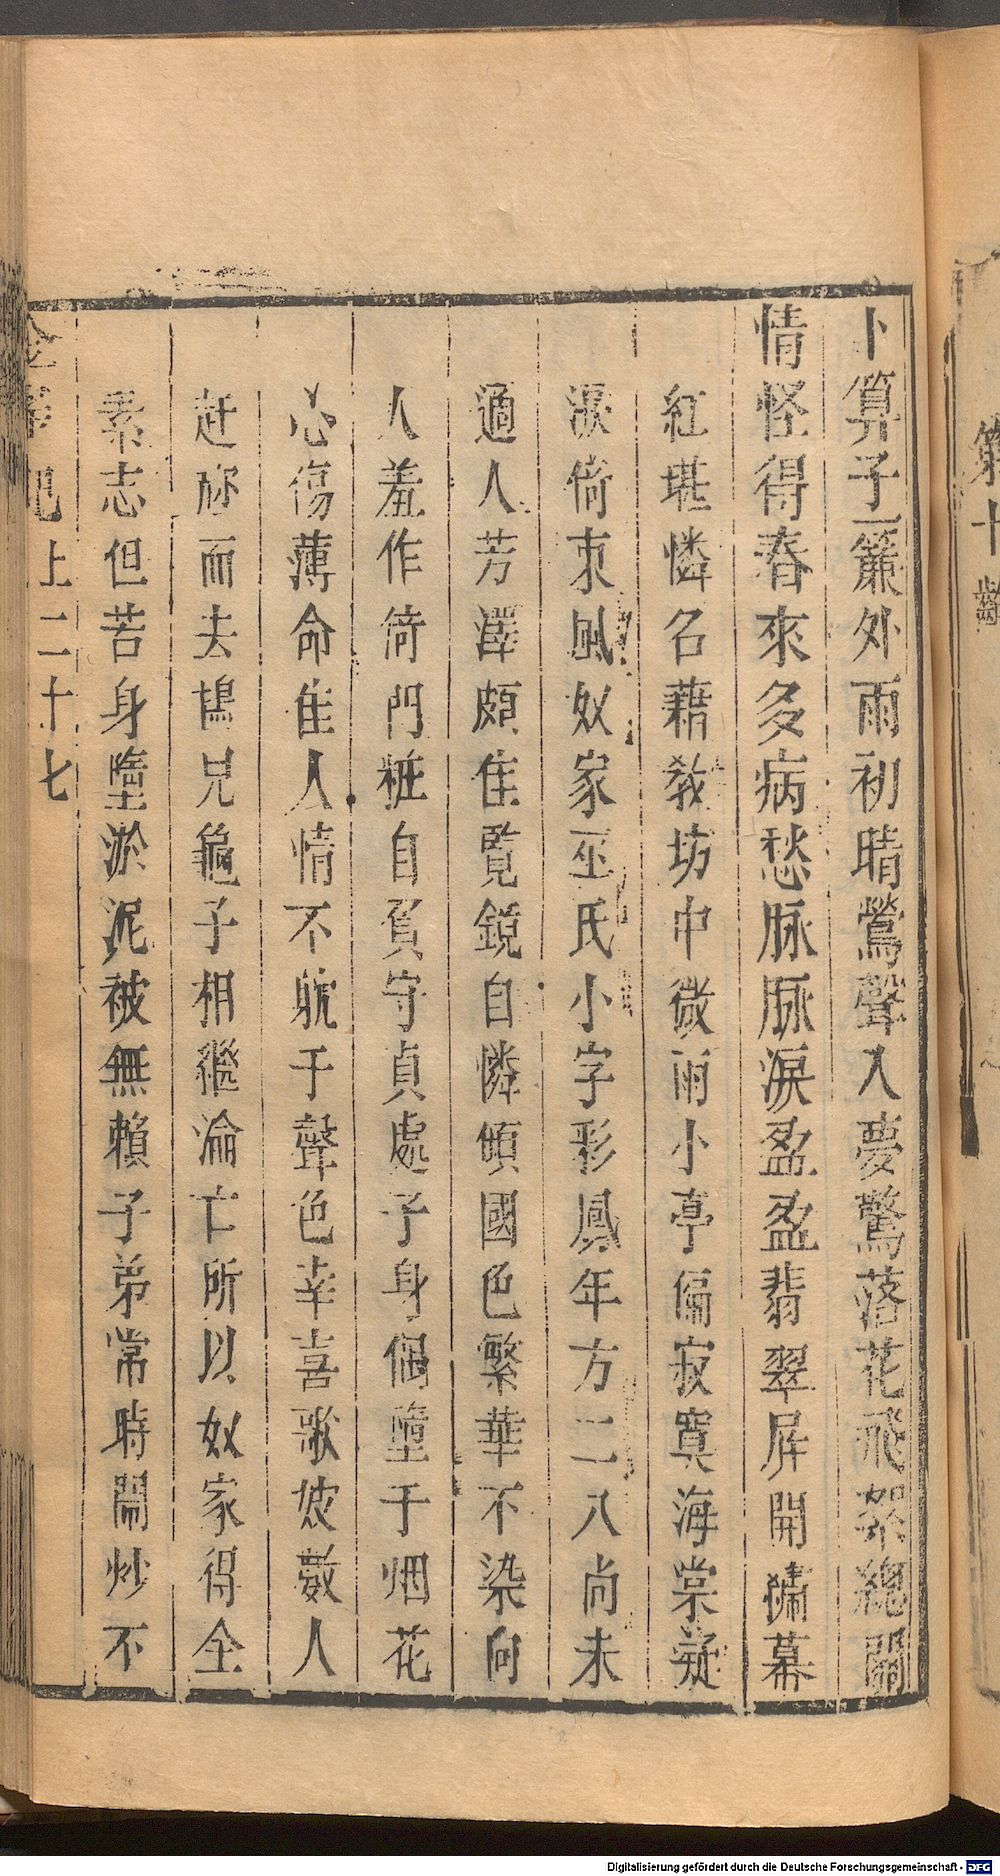 第十齣
卜算子簾外雨初晴鶯聲入夢驚落花飛絮總關
情怪得春來多病愁脉脉淚盈盈翡翠屏開繡幕
紅堪憐名藉教坊中微雨小亭偏寂寞海棠凝
淚倚東風奴家巫氏小字彩鳳年方二八尚未
適人芳澤頗佳覽鏡自憐傾國色繁華不染向
人羞作倚門粧自負守貞處子身偶墮于烟花
心傷薄命佳人情不躭于聲色幸喜歌妓數人
赶逐而去鴇兒龜子相繼淪亡所以奴家得全
素志但苦身墮淤泥被無賴子弟常時鬧炒不
上二十七
Digitalisierung gefördert durch die Deutsche Forschungsgemeinschaft - DFG